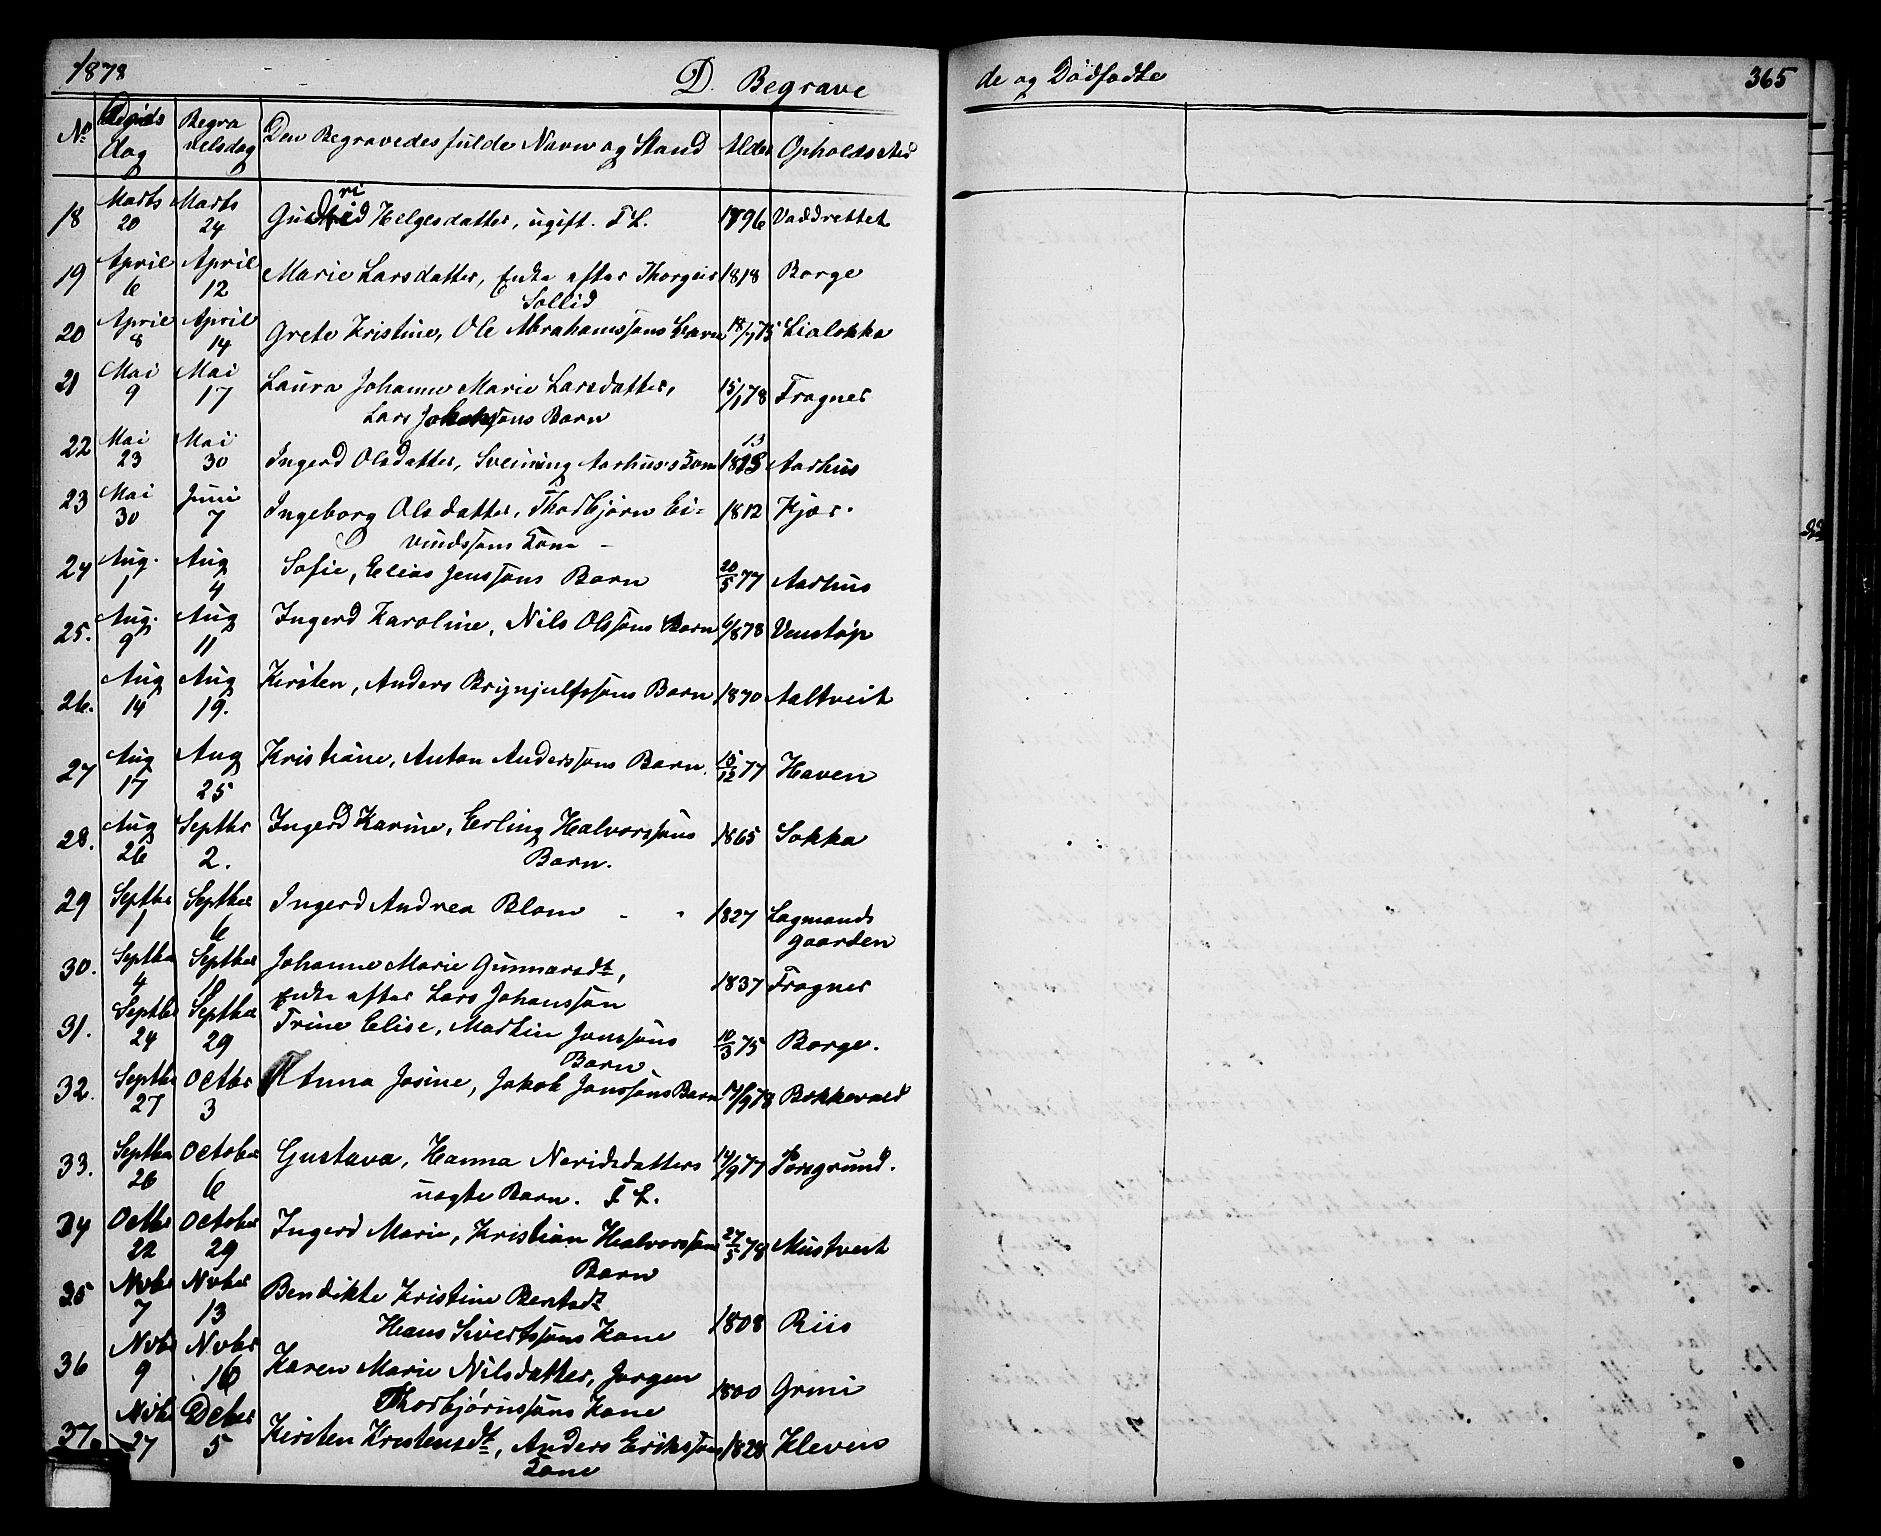 1878 D. Begrave de og Dödfödte 365
No Döds dag Begra velsdag Den Begravedes fulde Navn og Stand Alder Opholdssted
18 Marts 20 Marts 24 Gudrid Helgesdatter, ugift. F.L. 1796 Vaddrettet
19 April 6 April 12 Marie Larsdatter, Enke after Thorgeir 1818 Borge
Sollid
20 April 8 April 14 Grete Kristine, Ole Abrahamssöns Barn 18/7 75 Lialökka
21 Mai 9 Mai 17 Laura Johanne Marie Larsdatter, 15/1 78 Frogner
Lars Johanssöns Barn
22 Mai 23 Mai 30 Ingerd Olsdatter, Sveinung Aarhus's Kone 1813 Aarhus
23 Mai 30 Juni 7 Ingeborg Olsdatter, Thorbjörn Ei- 1812 Kjær.
vindssöns Kone
24 Aug. 1 Aug 4 Sofie, Elias Jenssöns Barn 20/5 77 Aarhus
25. Aug. 9 Aug 11 Ingerd Karoline, Nils Olssöns Barn 6/8 78 Venstöp
26. Aug 14 Aug 19. Kirsten, Anders Brynjulfssöns Barn 1870 Aaltveit
27 Aug 17 Aug 25 Kristiane, Anton Anderssöns Barn. 15/12 77 Haven
28. Aug 26 Septbr 2. Ingerd Karine, Erling Halvorssöns 1865 Sokka
Barn.
29 Septbr 1 Septber 6 Ingerd Andrea Blom - - 1827 Lagmands
gaarden
30. Septbr 4 Septber Johanne Marie Gunnarsdt, 1837 Frogner
Enke after Lars Johanssön
31. Septbr 24 Septber 29 Trine Elise, Martin Janssöns 10/3 75 Borge.
Barn
32. Septbr 27 Octbr 3 Anna Josine, Jakob Janssöns Barn 17/9 78 Bökkevald
33. Septbr 26 October 6 Gustava, Hanna Neridsdatters 14/9 77 Porsgrund.
uægte Barn. F.L.
34 Octbr 22 October 29 Ingerd Marie, Kristian Halvorssöns 27/5 78 Mustveit
Barn
35 Nvbr 7 Nvber 13 Bendikte Kristine Bentsdt
Hans Sivertssöns Kone 1808 Riis
36 Nvbr 9 Nvbr 16 Karen Marie Nilsdatter, Jörgen 1800 Grini
Thorbjörnssöns Kone
37. Nvbr 27 Dcber 5 Kirsten Kristensdt, Anders Erikssöns 1828 Kleven
Kone